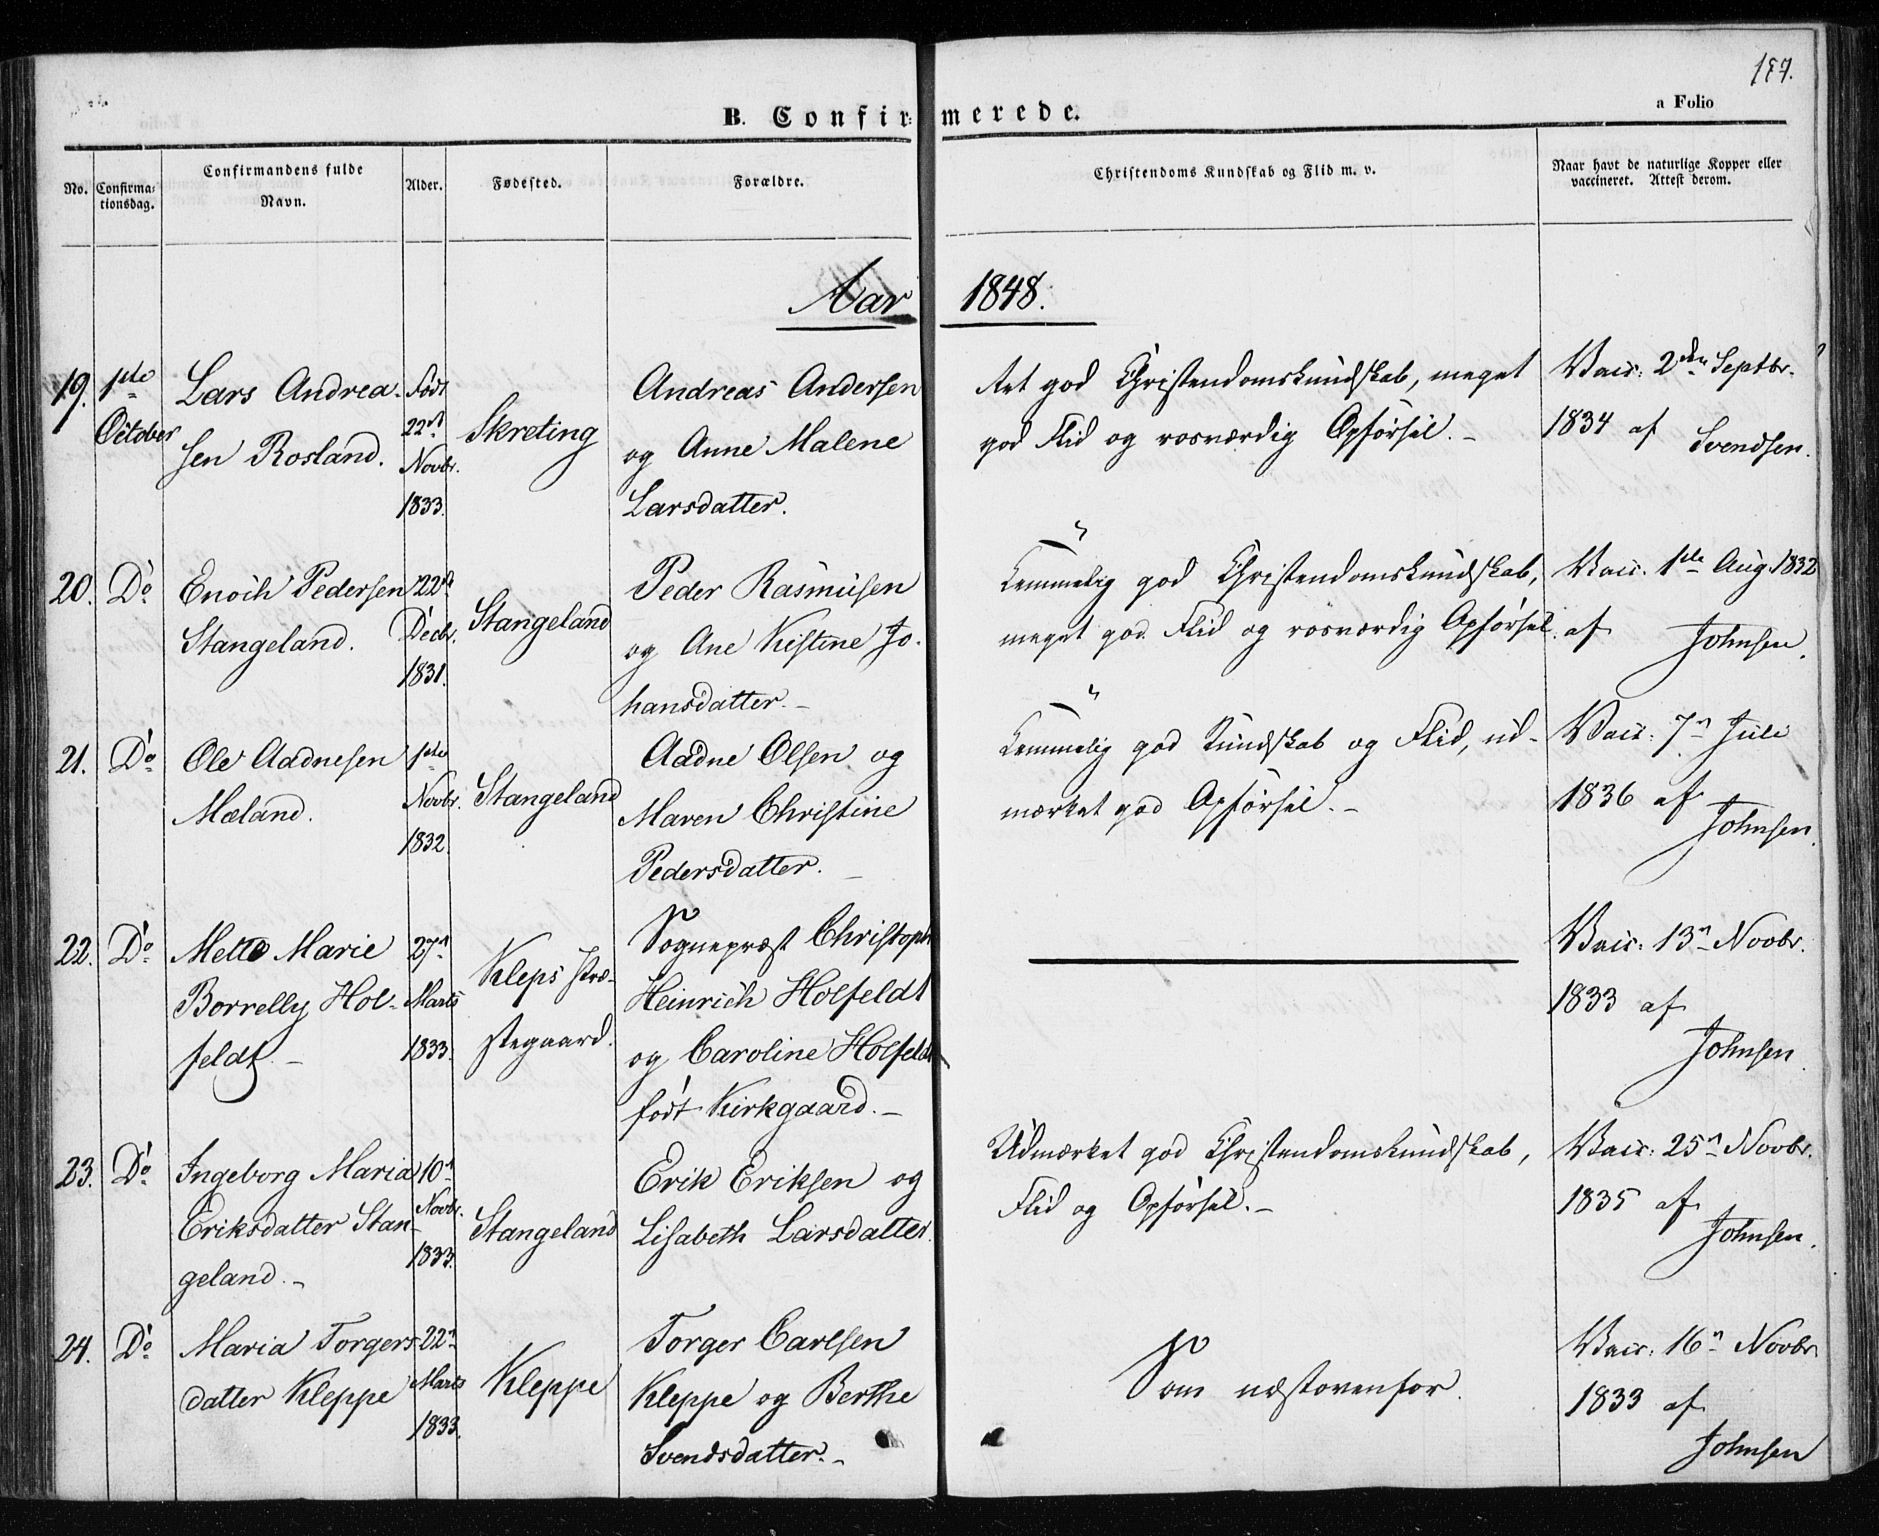 a Folio
B. Confirmerede.
No.
Confirma-
tionsdag.
Confirmandens fulde
Navn.
Alder.
Fødested.
Forældre.
Christendoms Kundskab og Flid m. v.
Naar havt de naturlige Kopper eller
vaccineret. Attest derom.
Aar 1848.
19.
1ste
October
Lars Andrea-
sen Rosland.
Født
22de
Novbr.
1833.
Skreting
Andreas Andersen
og Anne Malene
Larsdatter.
Ret god Christendomskundskab, meget
god Flid og rosværdig Opførsel.-
Vacc. 2den Septbr.
1834 af Svendsen.
20.
Do
Enoch Pedersen
Stangeland.
22de
Decbr.
1831.
Stangeland
Peder Rasmusen
og Ane Kistine Jo-
hansdatter.-
Temmelig god Christendomskundskab,
meget god Flid og rosværdig Opførsel.
Vacc. 1ste Aug. 1832
af Johnsen.
21.
Do
Ole Aadnesen
Mæland.
1ste
Novbr.
1832.
Stangeland
Aadne Olsen og
Maren Christine
Pedersdatter.-
Temmelig god Kundskab og Flid, ud-
mærket god Opførsel.-
Vacc. 7n Juli
1836 af
Johnsen.
22.
Do
Mette Marie
Borrelly Hol-
feldt.-
27n
Marts
1833.
Kleps Præ-
stegaard.
Sognepræst Christoph
Heinrich Holfeldt
og Caroline Holfeldt
født Kirkgaard.-
Vacc. 13n Novbr.
1833 af
Johnsen.
23.
Do
Ingeborg Maria
Eriksdatter Stan-
geland.-
10n
Novbr.
1833.
Stangeland
Erik Eriksen og
Lisabeth Larsdatter.
Udmærket god Christendomskundskab,
Flid og Opførsel.-
Vacc. 25n Novbr.
1835 af
Johnsen.
24.
Do
Maria Torgers-
datter Kleppe
22n
Marts
1833.
Kleppe
Torger Carlsen
Kleppe og Berthe
Svendsdatter.-
Som næstovenfor.
Vacc. 16n Novbr.
1833 af
Johnsen